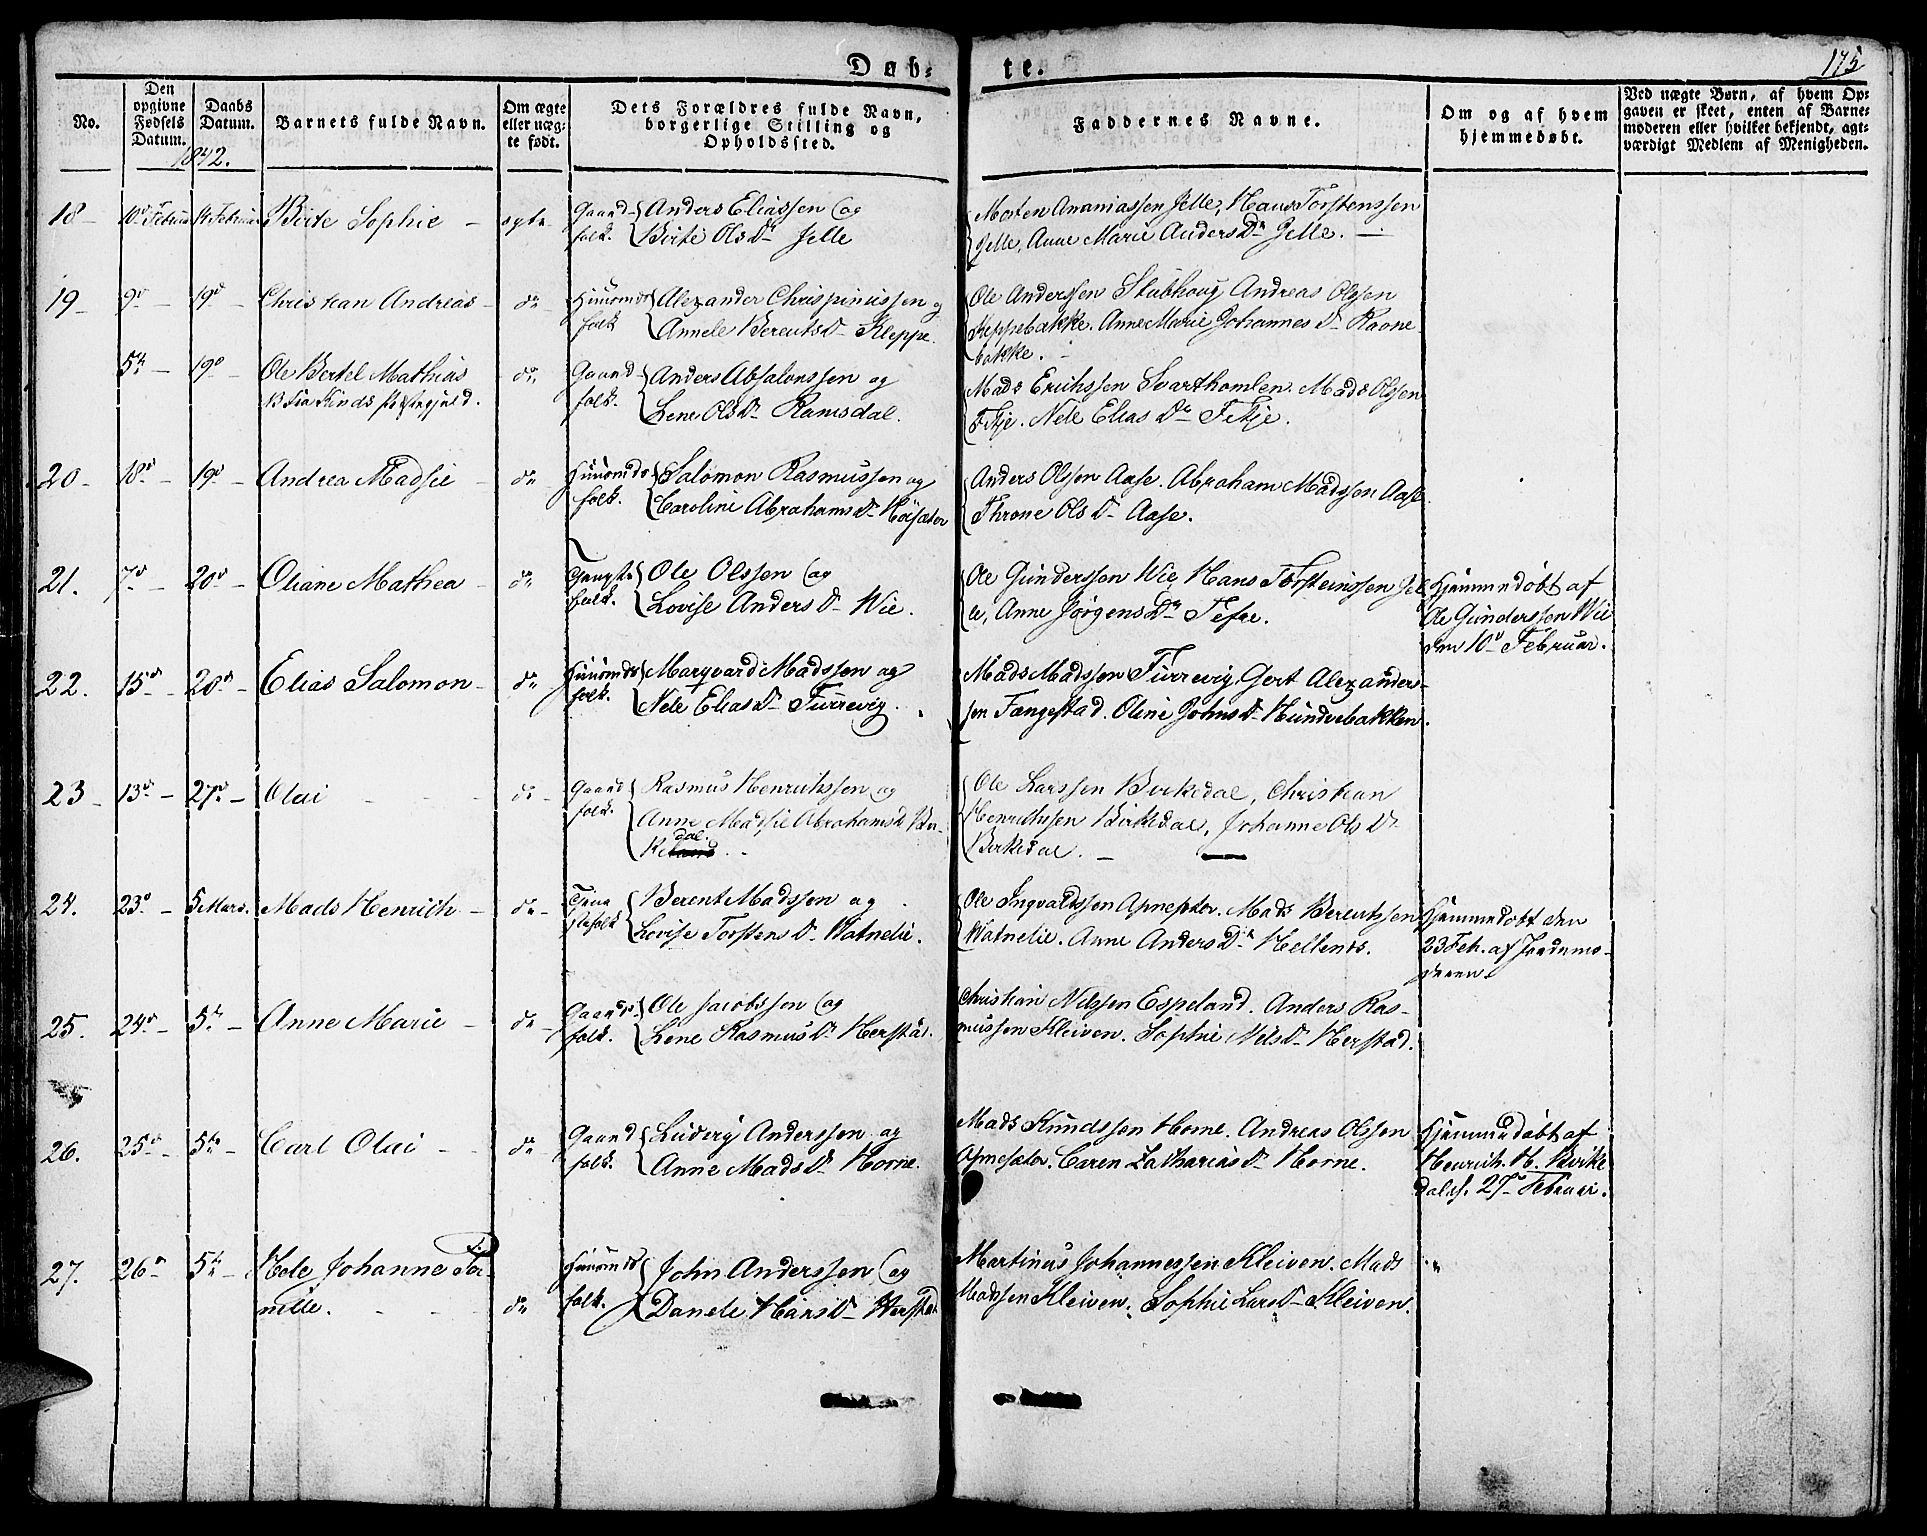 Døb-
te.
175
No.
Den
opgivne
Fødsels
Datum.
Daabs
Datum.
Barnets fulde Navn.
Om ægte
eller uæg-
te født.
Dets Forældres fulde Navn,
borgerlige Stilling og
Opholdssted.
Faddernes Navne.
Om og af hvem
hjemmedøbt.
Ved uægte Børn, af hvem Op-
gaven er skeet, enten af Barne-
moderen eller hvilket bekjendt, agt-
værdigt Medlem af Menigheden.
1842.
18 10d Februar 14 Februar Birte Sophie ægte Gaard- Anders Eliassen og
folk. Birte Ols Dr Jelle
Morten Ananiassen Jelle, Hans Torstenssen
Jelle, Anne Marie Anders Dr Jelle.
19 9d 19d Christian Andreas do Huusmds Alexander Chrispinussen og
folk Annele Berents Dr Kleppe.
Ole Anderssen Stabhoug Andreas Olssen
Keppebakke. Anne Marie Johannes Dr Raane
bakke.
5te 19d Ole Bertel Mathias do Gaard- Anders Absalonssen og
folk. Lene Ols Dr Ramsdal.
Mads Erichssen Svarthomlen. Mads Olssen
Fitje. Nele Elias Dr Fitje.
20 18d 19d Andrea Madsie do Huusmds Salomon Rasmussen og
folk. Caroline Abrahams Dr Høisæter
Anders Olssen Aase. Abraham Madssen Aase
Throne Ols Dr Aase.
21. 7d 20d Oliane Mathea do Ole Olssen og
folk. Lovise Anders Dr Wie.
Ole Gunderssen Wie, Hans Torsteinssen Jel
le, Anne Jørgens Dr Tefre.
Hjemmedøbt af
Ole Gunderssen Wie
den 10d Februar.
22. 15d 20d Elias Salomon do Huusmds Marqvard Madssen og
folk. Nele Elias Dr Furrevig.
Mads Madssen Furrevig, Gert Alexanders-
sen Fængestad. Oline Johns Dr Hundvebakken.
23 13d 27d Olai do Gaard Rasmus Henrichssen og
folk. Anne Madsie Abrahams Dr Bir-
dal.
ke
Ole Larssen Birkedal, Christian
Henrichssen Birkedal, Johanne Ols Dr
Birkedal.
24. 23d 5 Mars. Mads Henrich do Tjene Berent Madssen og
stefolk Lovise Torstens Dr Watnelie.
Ole Ingvaldssen Apnesæter. Mads Berentssen
Watnelie. Anne Anders Dr Hellenes.
Hjemmedøbt den
23 Feb. af Jordemo-
deren.
25. 24d 5te Anne Marie do Gaards Ole Jacobssen og
folk. Lene Rasmus Dr Herstad.
Christian Nilssen Espeland. Anders Ras-
mussen Kleiven. Sophie Nels Dr Herstad.
26. 25d 5te Carl Olai do Gaard Ludvig Anderssen og
folk. Anne Mads Dr Horne.
Mads Knudssen Horne. Andreas Olssen
Apnesæter. Caren Zacharias Dr Horne.
Hjemmedøbt af
Henrich H. Birke
dal d. 27d Februar.
27. 26d 5te Nele Johanne Per-
nille. do Huusmds John Anderssen og
folk. Danele Hans Dr Herstad
Martinus Johannessen Kleiven. Mads
Madssen Kleiven. Sophie Lars Dr Kleiven.